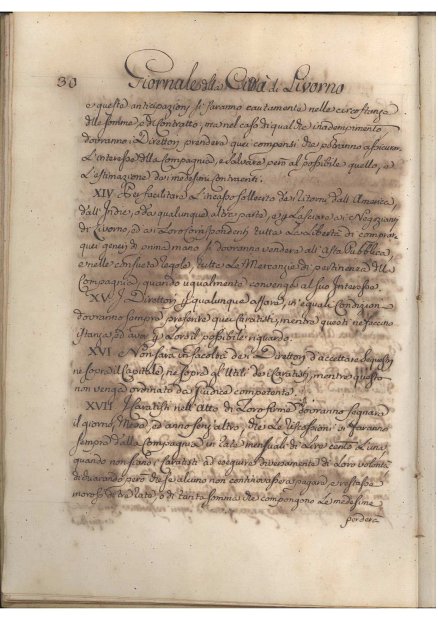 30 Giornale della Città di Livorno
e queste anticipazioni si faranno cautamente nelle circostanze
delle somme, e di contratto, ma nel caso di qualche inadempimento
dovranno i Direttori prendere quei compensi che potranno assicurare
l'interesse della Compagnia, e salvare però al possibile quello, e
l'estimazione dei medesimi contraenti.
XIV Per facilitare l'incasso sollecito dei ritorni dall'America,
dall'Indie, o da qualunque altra parte, e lasciare ai Negozianti
di Livorno, e ai loro corrispondenti tutta la libertà di comprar
quei generi di prima mano si dovranno vendere all'asta Pubblica
e nelle consuete regole, tutte le Mercanzie di pertinenza della
Compagnia, quando ugualmente convenga al suo Interesse.
XV I Direttori in qualunque affare, in eguali condizioni
dovranno sempre preferire quei caratisti, mentre questi ne faccino
istanza, ed avere a loro il possibile riguardo.
XVI Non sarà in facoltà dei Direttori d'accettare Sequestri
nè sopra il Capitale, nè sopra gl'Utili dei caratisti, mentre questo
non venga ordinato da Giudice competente.
XVII I caratisti nell'atto di loro firme dovranno segnare
il giorno, Mese, ed anno senz'altro, che le
sempre dalla Compagnia in rate mensuali di Lire cento l'una,
quando non siano i Caratisti ad eseguire diversamente di loro volontà
dichiarando però che se alcuno non continovasse a pagare, e restasse
moroso rate, o di tanta somma che compongono le medesime
perderà